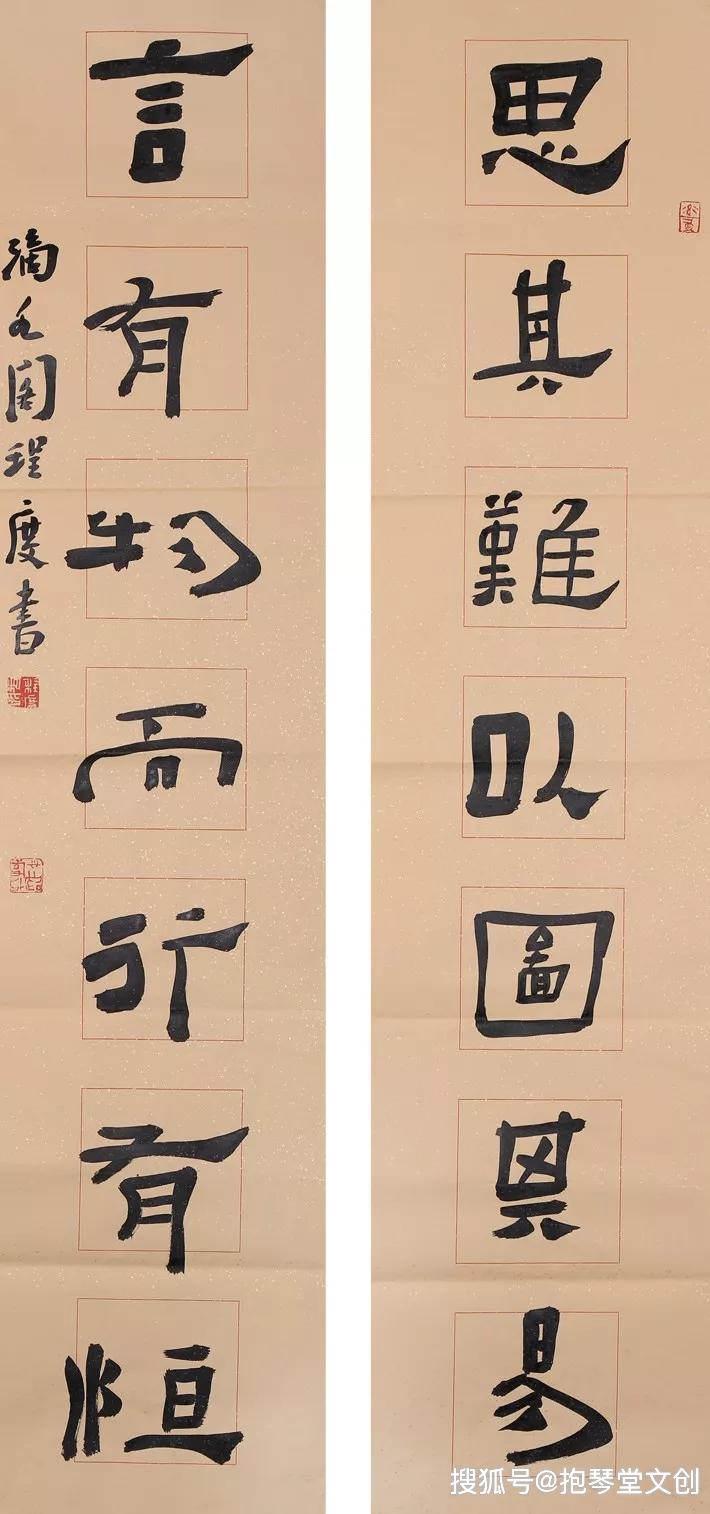 思其難以圖其易
言有物而行有恒
程度書
搜狐号@抱琴堂文创